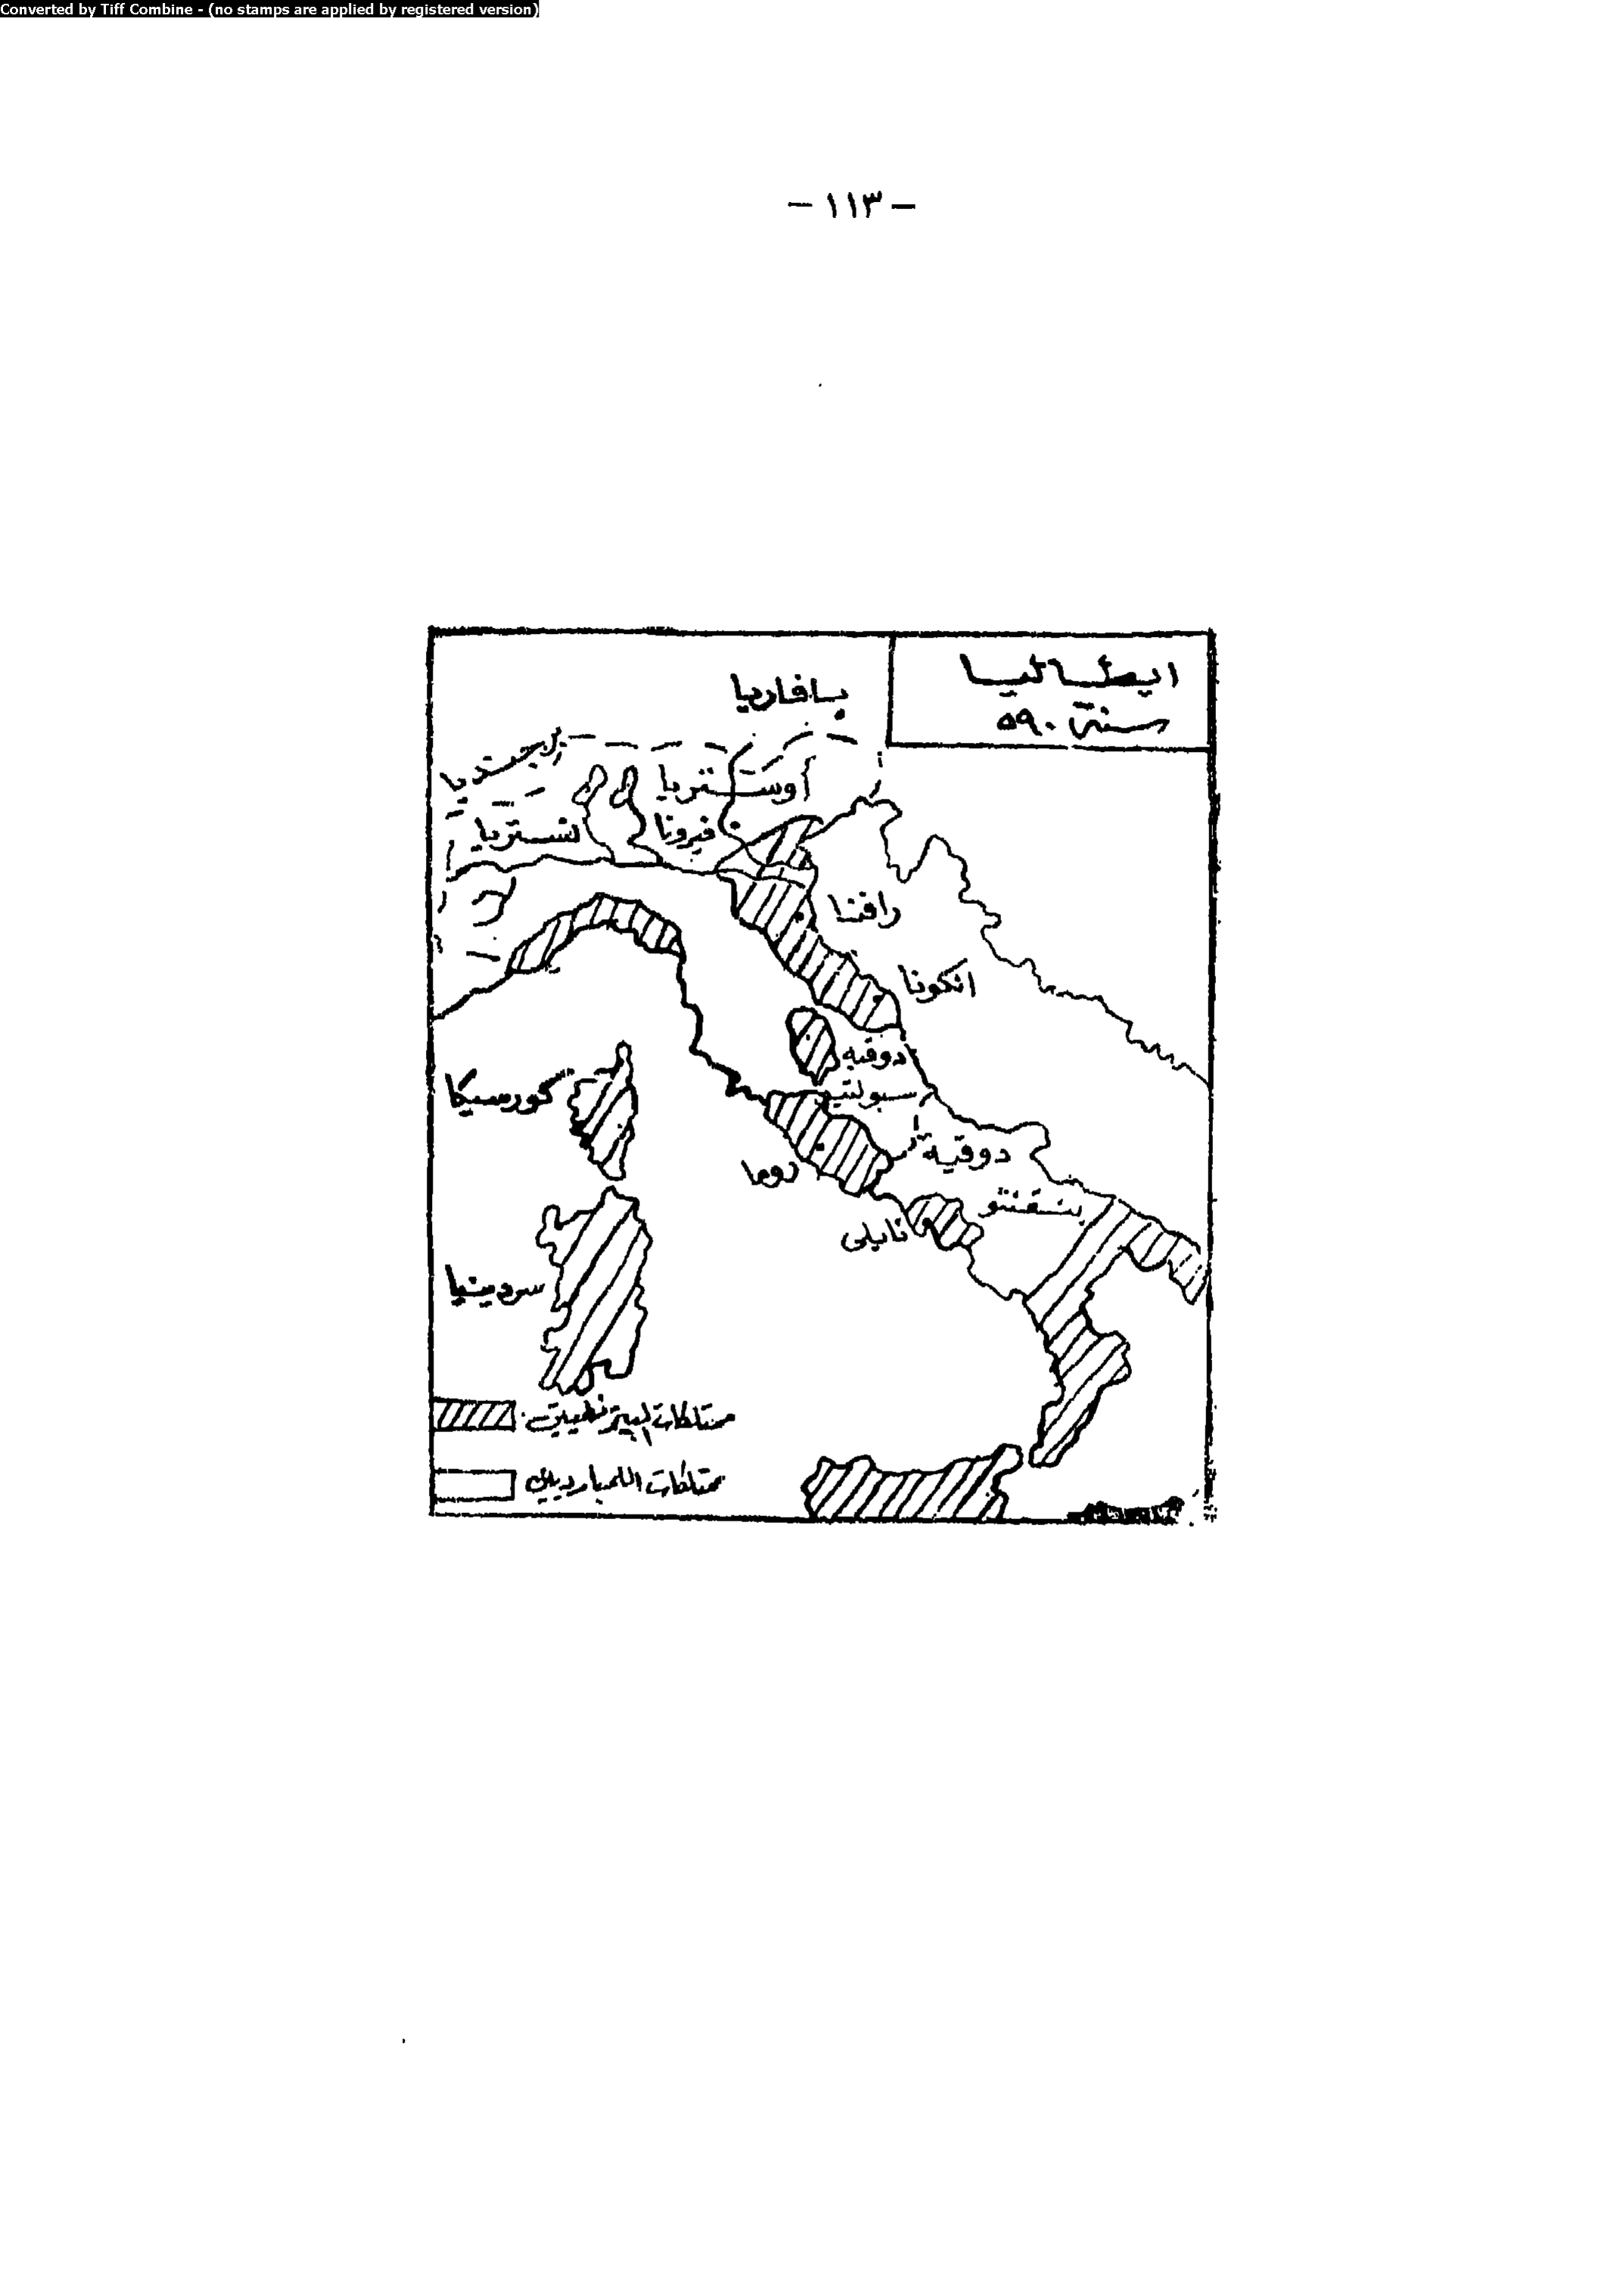 Converted by Tiff Combine - (no stamps are applied by registered version)
- ١١٣ -
ايطاليا
سنة ٥٩٠
بافاريا
اوستريا
نستريا
فيرونا
رافنا
انكونا
دوقيه
سبولتيو
كورسيكا
دوقية
بنفنتو
روما
نابلى
سردينيا
ممتلكات البيزنطيين
ممتلكات اللمبارديين